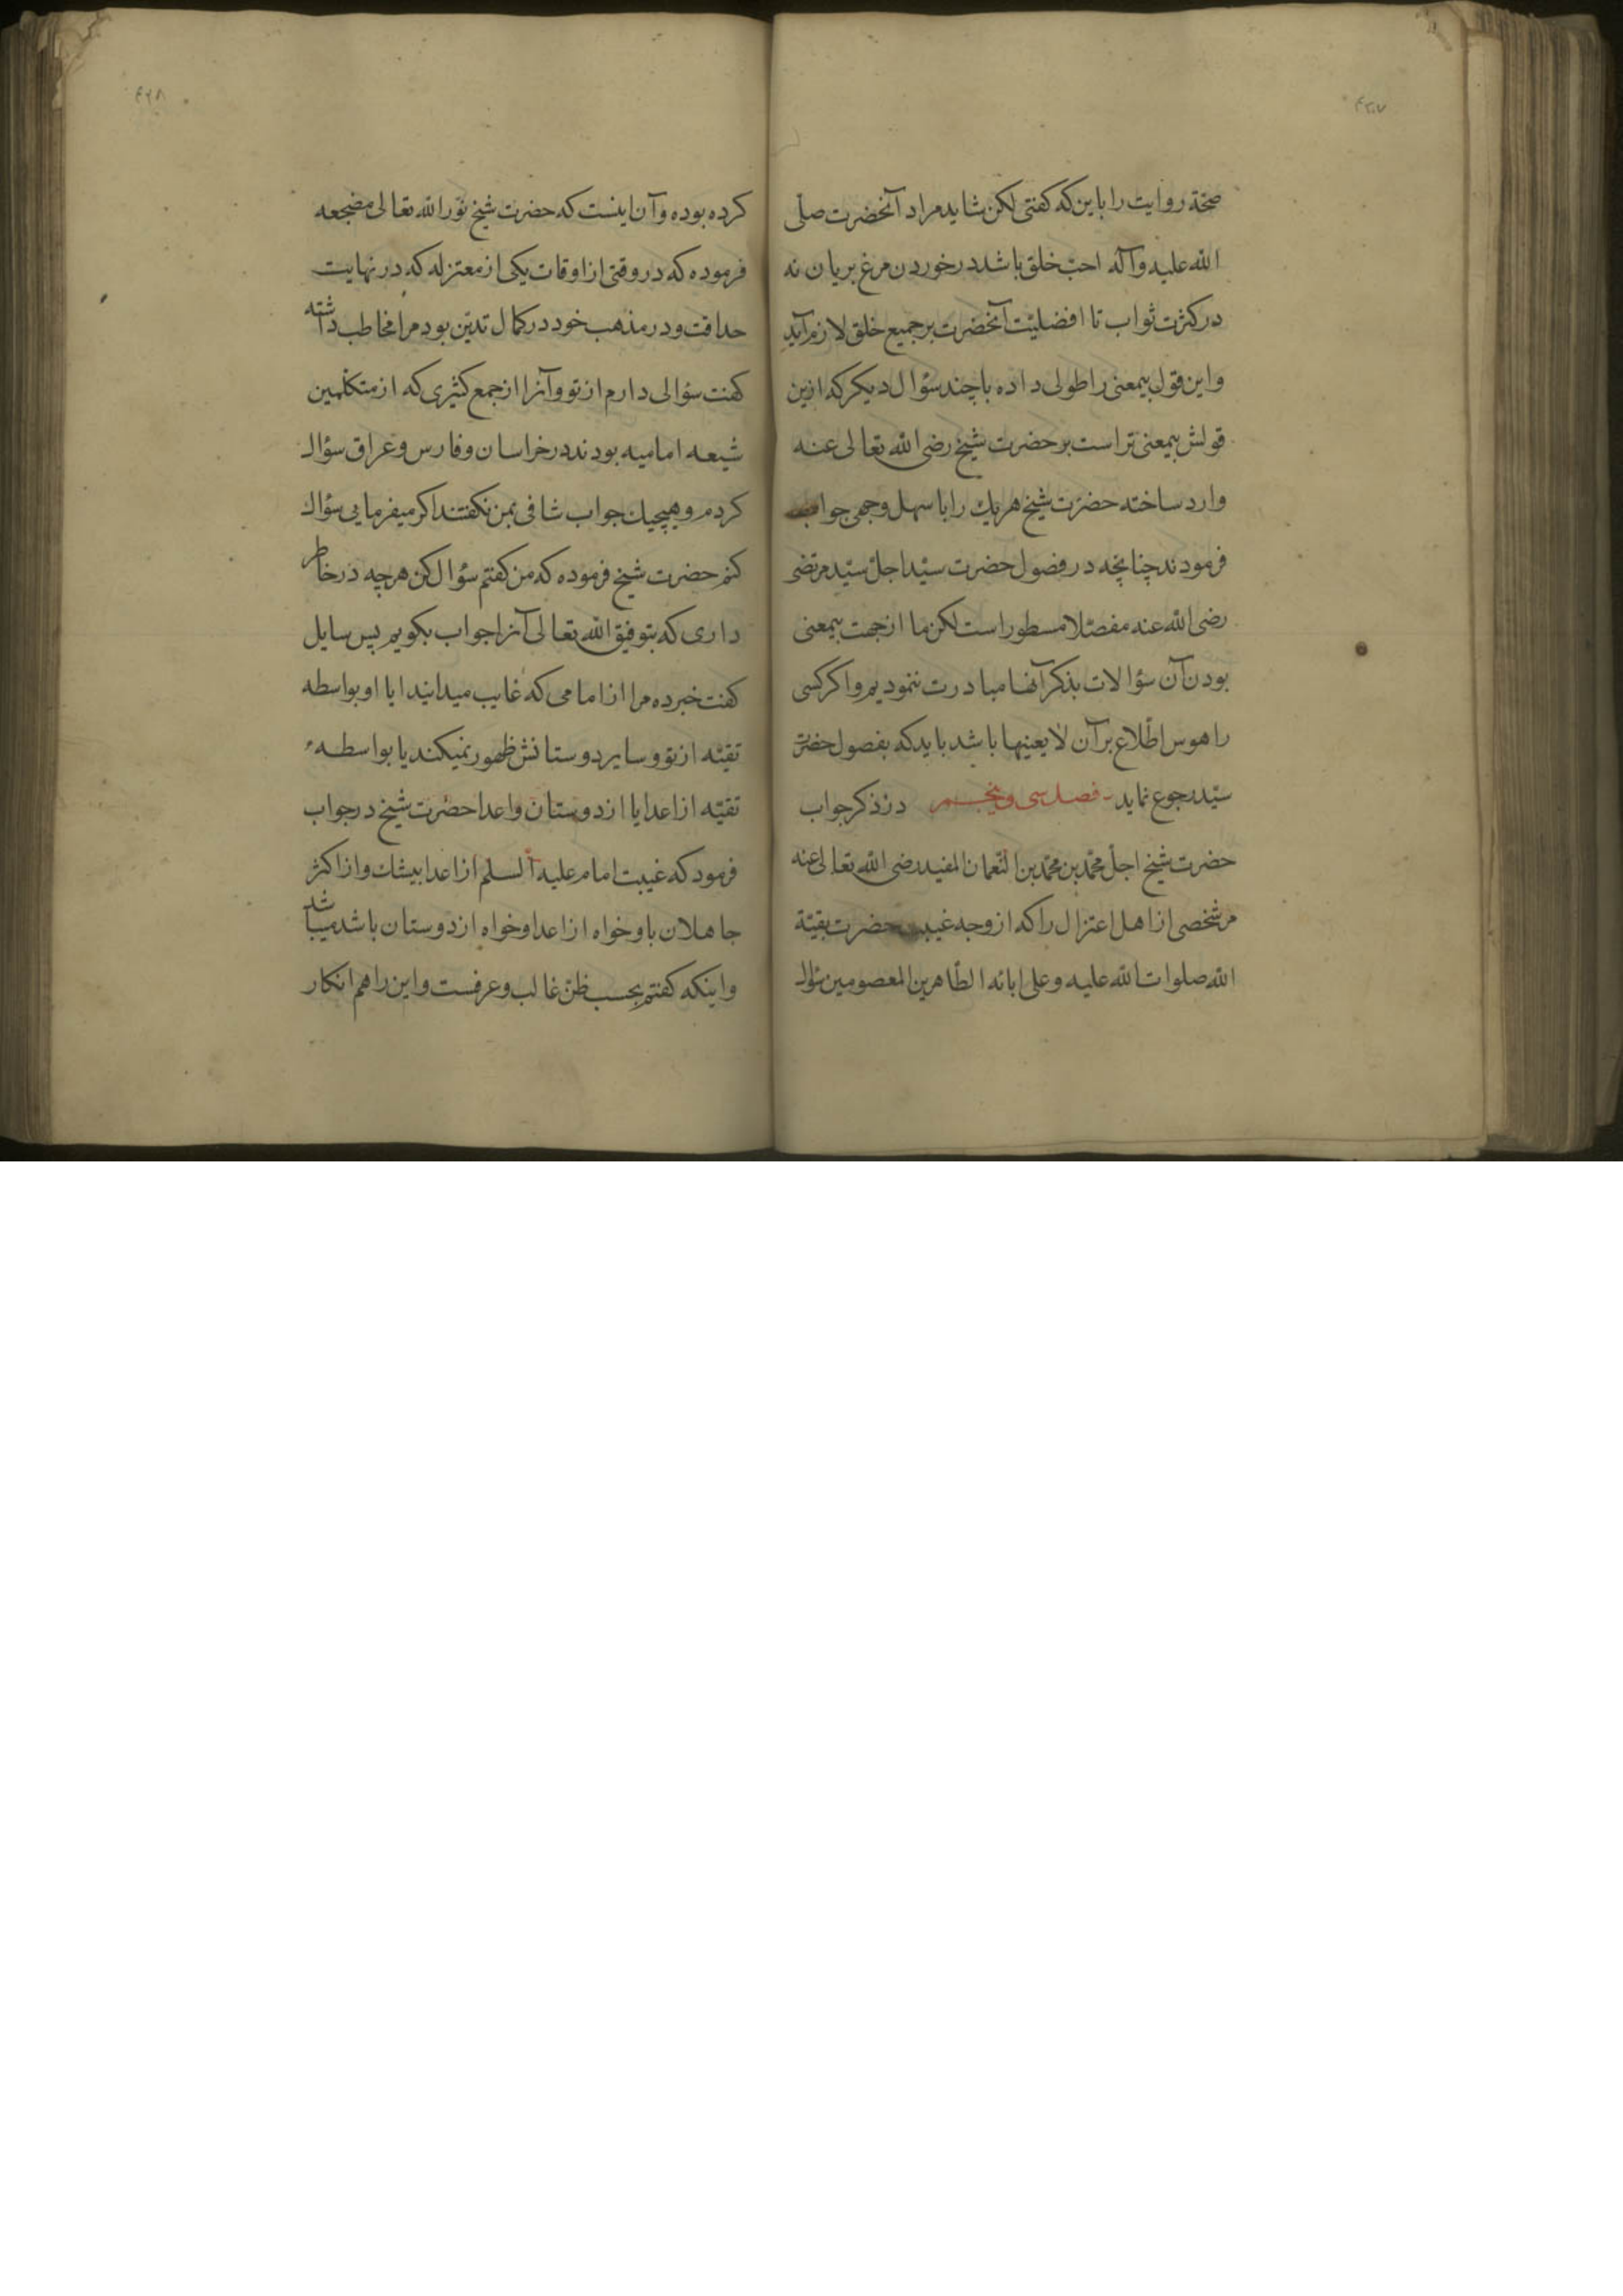 ۴۲۷
صحّة روایت را باین که کفتی لکن شاید مراد آنحضرت صلّی
الله علیه وآله احبّ خلق باشد در خوردن مرغ بریان نه
در کثرت ثواب تا افضلیّت آنحضرت بر جمیع خلق لازم آید
واین قول بیمعنی را طولی داده با چند سؤال دیکر که ازین
قولش بیمعنی تر است بر حضرت شیخ رضی الله تعالی عنه
وارد ساخته حضرت شیخ هریك را باسهل وجهی جواب
فرمودند چنانچه در فصول حضرت سیّد اجلّ سیّد مرتضی
رضی الله عنه مفصّلا مسطور است لکن ما از جهت بیمعنی
بودن آن سؤالات بذکر آنها مبادرت ننمودیم و اکر کسی
را هوس اطّلاع بر آن لایعنیها باشد باید که بفصول حضرت
سیّد رجوع نماید فصل سی و پنجم در ذکر جواب
حضرت شیخ اجلّ محمّد بن محمّد بن النّعمان المفید رضی الله تعالی عنه
مر شخصی از اهل اعتزال را که از وجه غیبت حضرت بقیّة
الله صلوات الله علیه وعلی ابائه الطّاهرین المعصومین سؤال
۴۲۸
کرده بوده وآن اینست که حضرت شیخ نوّر الله تعالی مضجعه
فرموده که در وقتی از اوقات یکی از معتزله که در نهایت
حداقت ودر مذهب خود در کمال تدیّن بود مرا مخاطب داشته
کفت سؤالی دارم از تو وآنرا از جمع کثیری که از متکلّمین
شیعه امامیه بودند در خراسان وفارس وعراق سؤال
کردم وهیچیك جواب شافی بمن نکفتند اکر میفرمایی سؤال
کنم حضرت شیخ فرموده که من کفتم سؤال کن هرچه در خاطر
داری که بتوفیق الله تعالی آنرا جواب بکویم پس سایل
کفت خبر ده مرا از امامی که غایب میدانید ایا او بواسطه
تقیّه از تو وسایر دوستانش ظهور نمیکند یا بواسطهء
تقیّه از اعدا یا از دوستان واعدا حضرت شیخ در جواب
فرمود که غیبت امام علیه السلم از اعدا بیشك واز اکثر
جاهلان باو خواه از اعدا وخواه از دوستان باشد میباشد
واینکه کفتم بحسب ظنّ غالب وعرفست واین را هم انکار